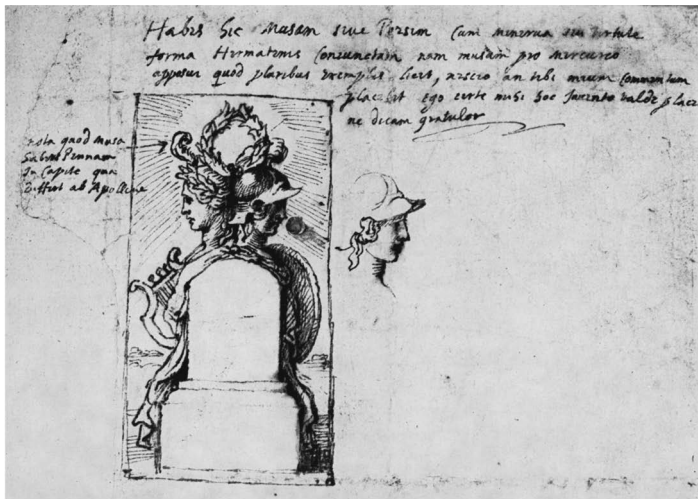 Habes hic Musam sive Poesim cum minerva seu virtute
forma Hermatenis coniunctam nam musam pro mercurio
apposui quod pluribus exemplis licet, nescio an tibi meum commentum
placebit ego certe mihi hoc invento valde placeo
ne dicam gratulor
nota quod Musa
habet Pennam
in Capite qua
differt ab Apolline